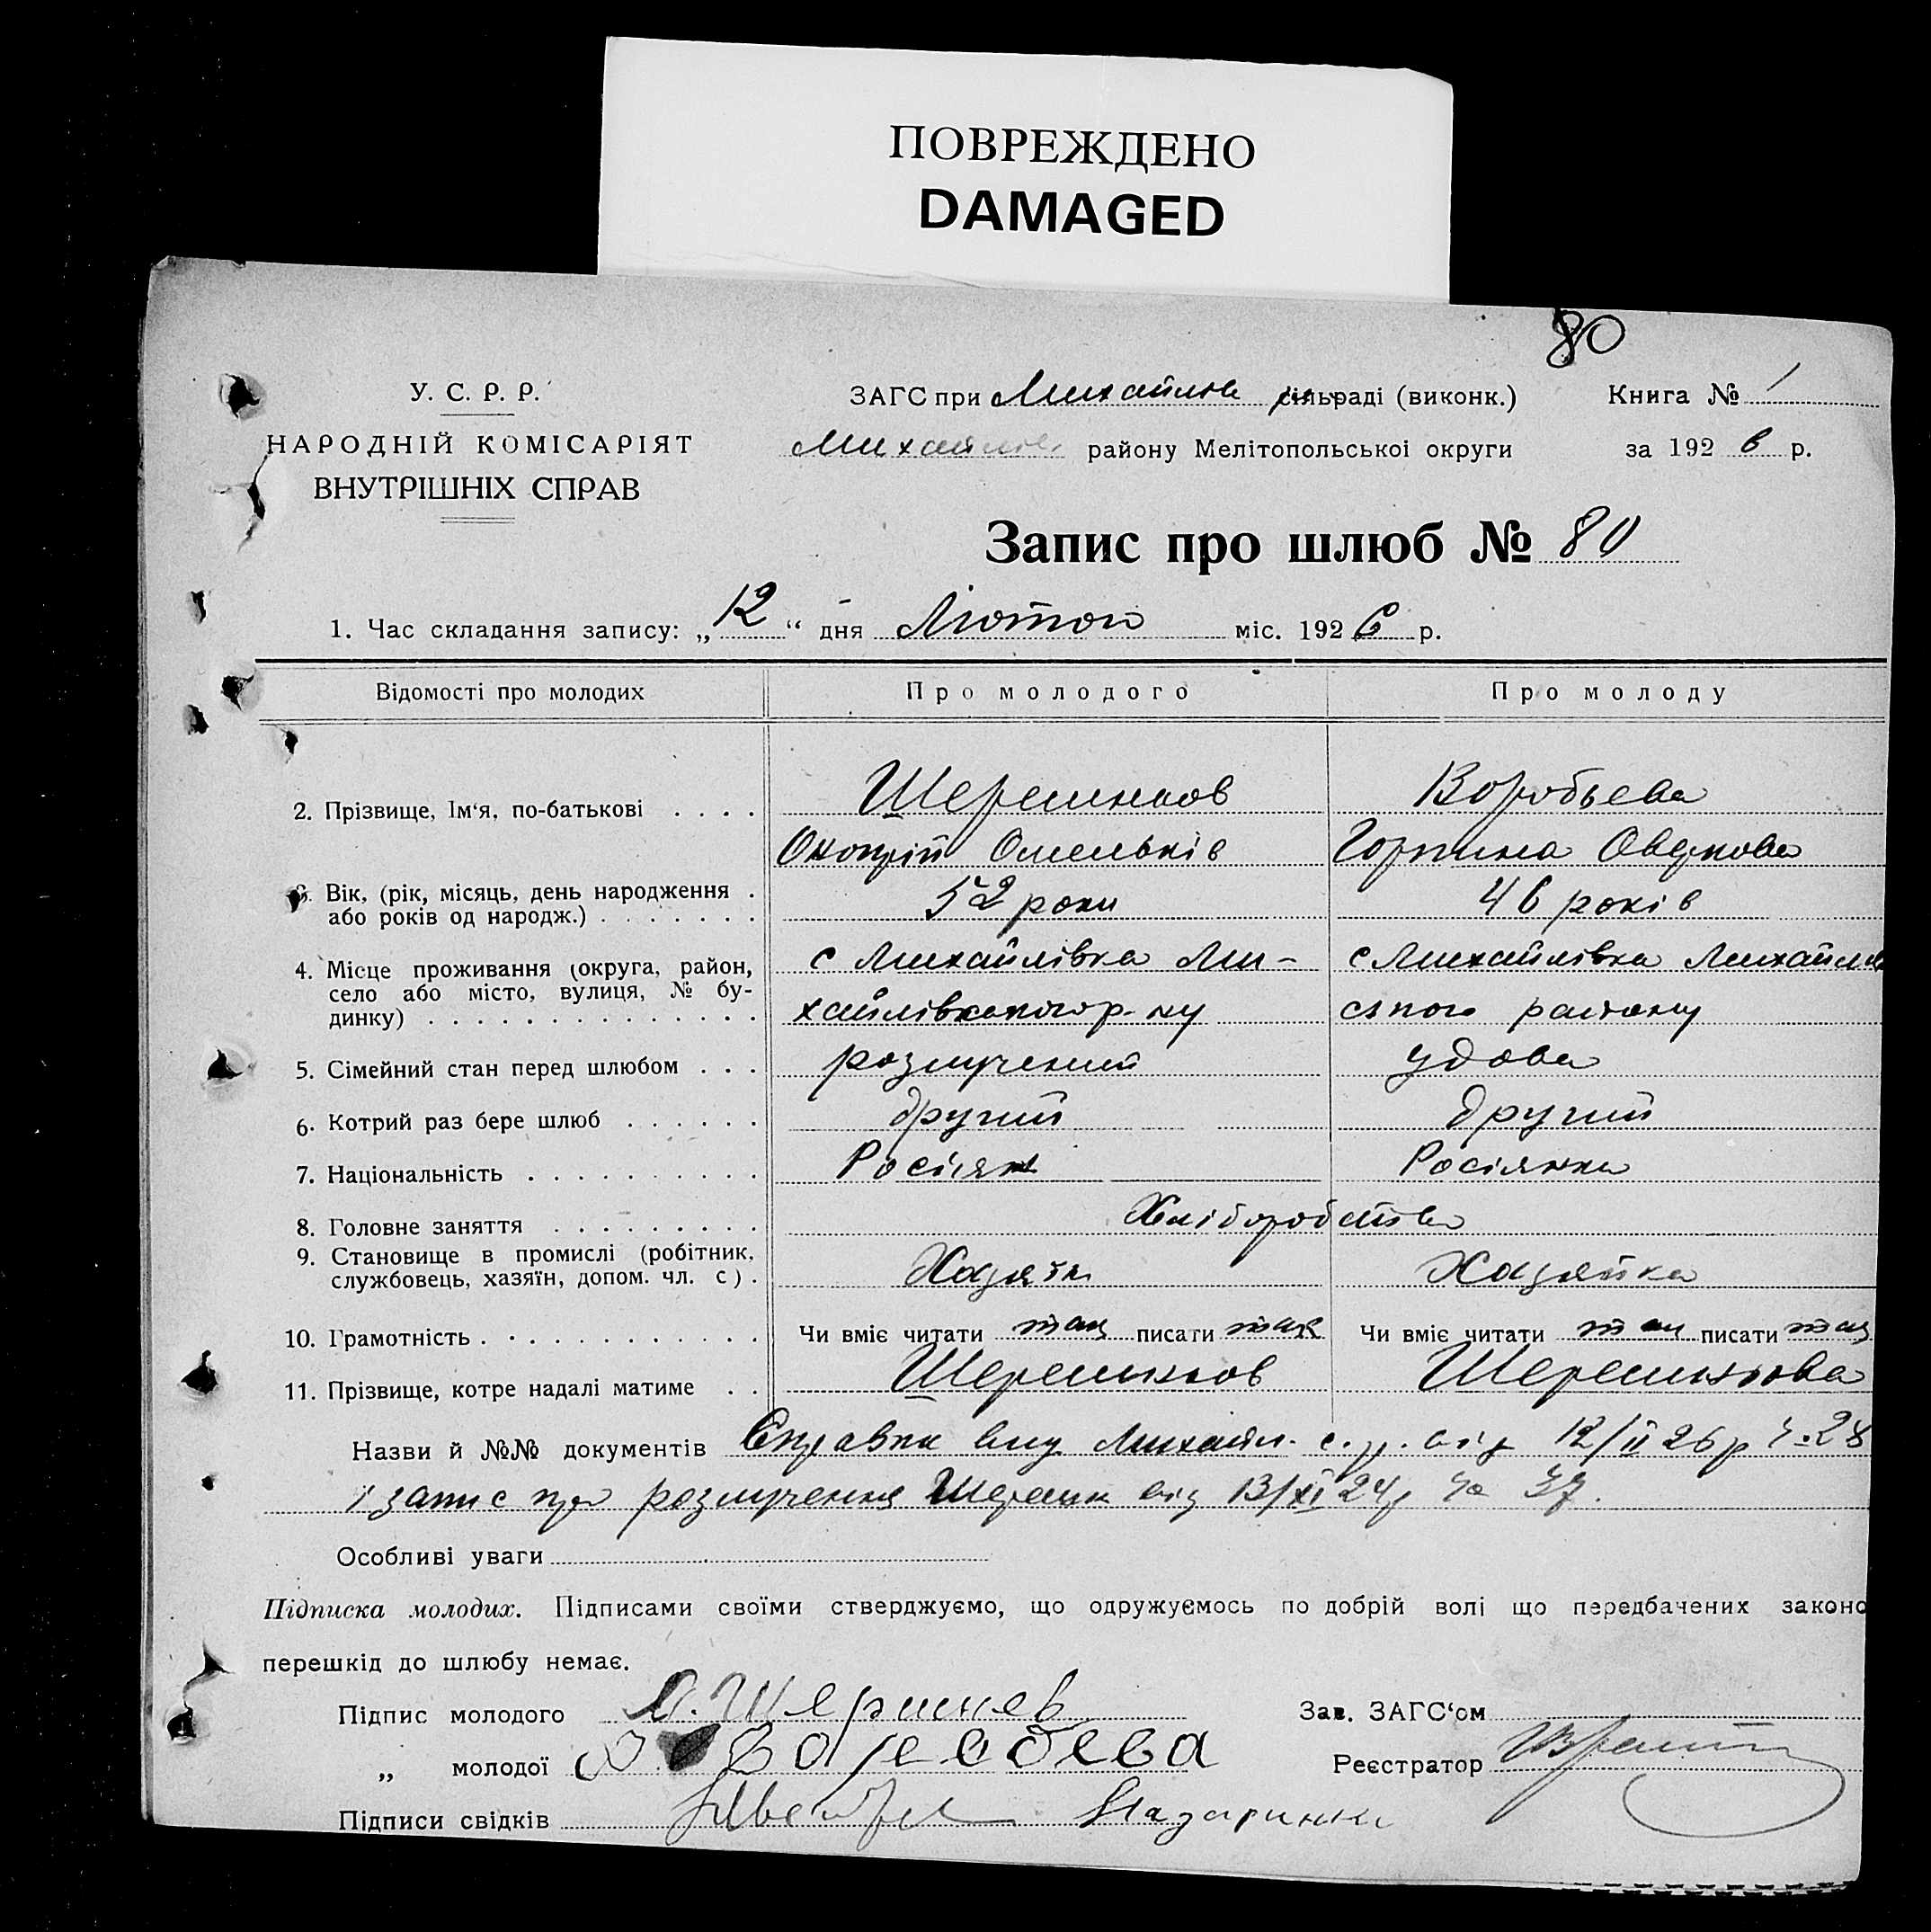 ПОВРЕЖДЕНО
DAMAGED
80
У. С. Р. Р.
НАРОДНІЙ КОМІСАРІЯТ
ВНУТРІШНІХ СПРАВ
ЗАГС при Михайлів сільраді (виконк.)
Михайлів району Мелітопольської округи
Книга № 1
за 1926 р.
Запис про шлюб № 80
1. Час складання запису: „12“ дня Лютого міс. 1926 р.
Відомості про молодих
Про молодого
Про молоду
2. Прізвище, Ім'я, по-батькові . . . .
Шерешнков
Воробьева
Омельків
Горпина
3. Вік, (рік, місяць, день народження .
або років од народж.) . . . . . . .
52 роки
46 років
4. Місце проживання (округа, район,
село або місто, вулиця, № бу-
динку) . . . . . . . . . . . . . .
с Михайлівка Ми-
хайлівського р-ну
с Михайлівка Михайлів
ського району
5. Сімейний стан перед шлюбом . . .
розлучений
удова
6. Котрий раз бере шлюб . . . . . .
другий
другий
7. Національність . . . . . . . . . .
Росіян
Росіянка
8. Головне заняття . . . . . . . . .
Хліборобство
9. Становище в промислі (робітник,
службовець, хазяїн, допом. чл. с) .
Хазяїн
Хазяйка
10. Грамотність . . . . . . . . . . . .
Чи вміє читати так писати так
Чи вміє читати так писати так
11. Прізвище, котре надалі матиме . .
Шерешнков
Шерешнкова
Назви й №№ документів Справка Михайл. с.р. від 12/II 26р ч. 28
і запис про розлучення від 13/XI 24р за 37.
Особливі уваги
Підписка молодих. Підписами своїми стверджуємо, що одружуємось по добрій волі що передбачених законо
перешкід до шлюбу немає.
Підпис молодого
Зав. ЗАГС'ом
„ молодої
Реєстратор
Підписи свідків